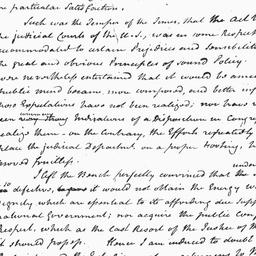 particular Satisfaction.
Such was the Temper of the Times, that the Act
the judicial Courts of the U.S., was in some Respect
accommodated to certain Prejudices and Sensibilities
the great and obvious Principles of sound Policy.
were nevertheless entertained that it would be amen
public mind became more composed, and better inf
those Expectations have not been realized; nor have
Indications of a Disposition in Congress
realize them — on the contrary, the Efforts repeatedly
place the judicial Department on a proper Footing, h
proved fruitless.
I left the Bench perfectly convinced that
under
so defective, it would not obtain the Energy we
Dignity which are essential to its affording due supp
national Government; nor acquire the public conf
Respect, which as the last Resort of the Justice of the
it should possess. Hence I am induced to doubt